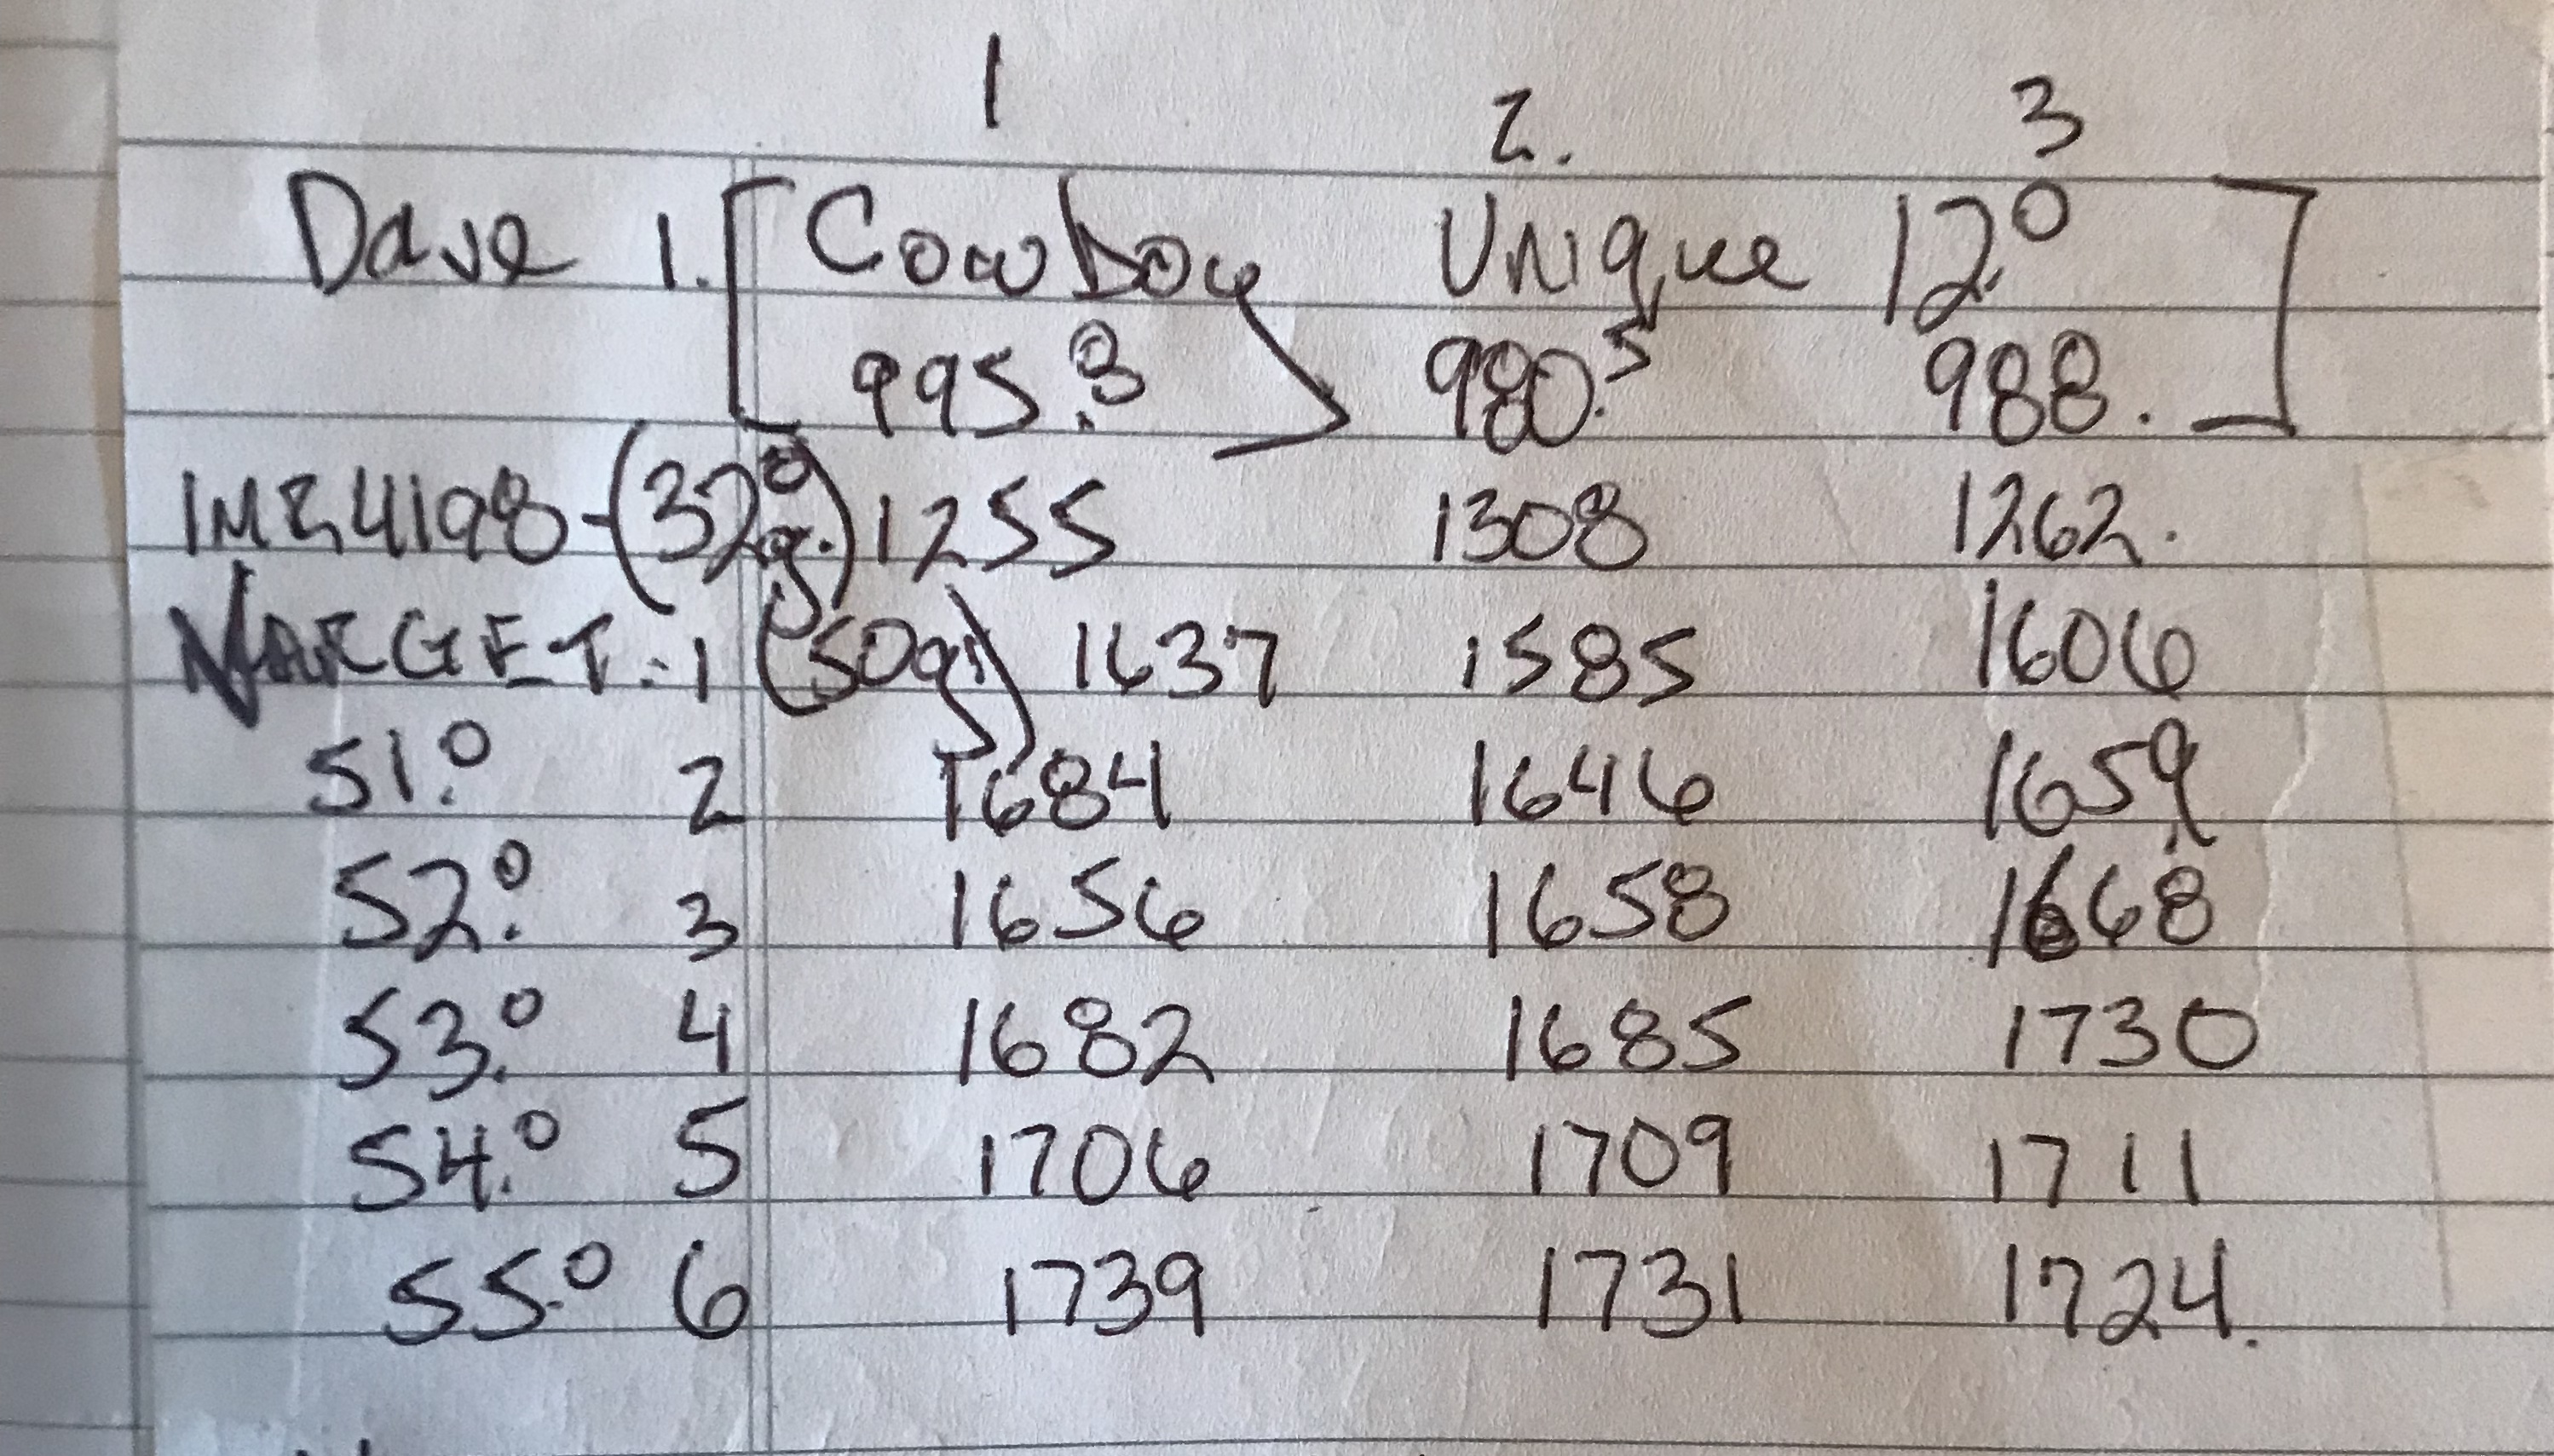 1 2. 3
Dave 1. [Cowboy Unique 12.0
995.8 980.5 988.]
IMR4198-(32.0g.) 1255 1308 1262.
VARGET.:1 (50g.) 1637 1585 1606
51.0 2 1684 1646 1659
52.0 3 1656 1658 1668
53.0 4 1682 1685 1730
54.0 5 1706 1709 1711
55.0 6 1739 1731 1724.